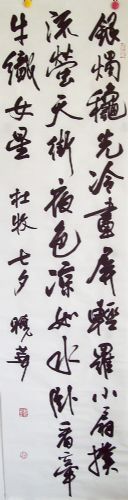 銀燭穐光冷畫屏輕羅小扇撲
流螢天街夜色涼如水卧看牽
牛織女星 杜牧 七夕 曉華